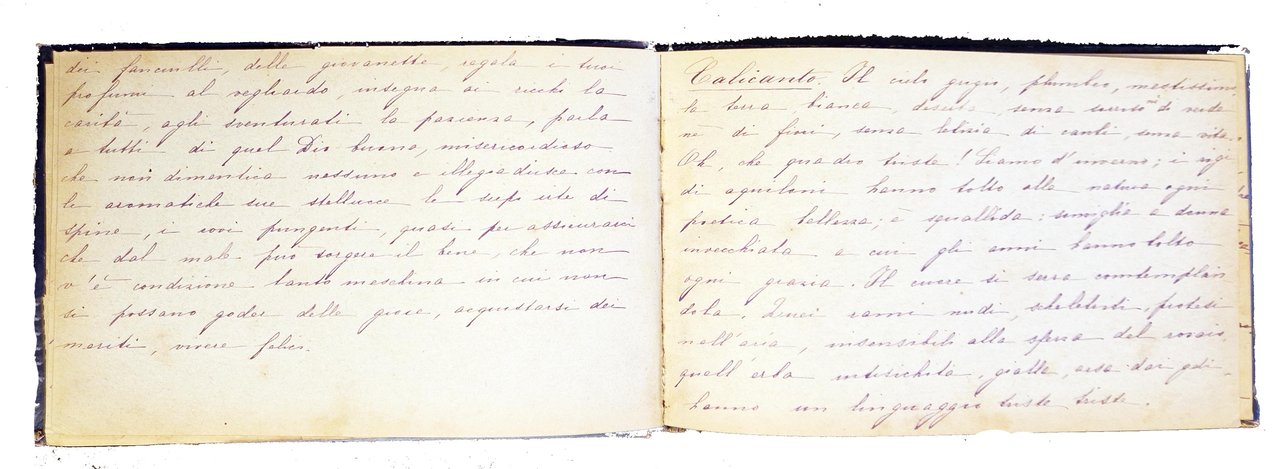 dei fanciulli, delle giovanette, regala i tuoi
profumi al vegliardo, insegna ai ricchi la
carità, agli sventurati la pazienza, parla
a tutti di quel Dio buono, misericordioso
che non dimentica nessuno e illegiadrisce con
le aromatiche sue stellucce le siepi irte di
spine, i rovi pungenti, quasi per assicurarci
che dal male può sorgere il bene, che non
v'è condizione tanto meschina in cui non
si possano goder delle gioie, acquistarsi dei
meriti, vivere felici.
Calicanto. Il cielo grigio, plumbeo, mestissimo,
la terra bianca, deserta, senza sorriso di verde
nè di fiori, senza letizia di canti, senza vita.
Oh, che quadro triste! Siamo d'inverno; i rigi-
di aquiloni hanno tolto alla natura ogni
poetica bellezza; è squallida: somiglia a donna
invecchiata a cui gli anni hanno tolto
ogni grazia. Il cuore si serra contemplan
dola. Quei rami nudi, scheletriti, protesi
nell'aria, insensibili alla sferza del rovaio,
quell'erba intisichita, gialla, arsa dai geli
hanno un linguaggio triste triste.